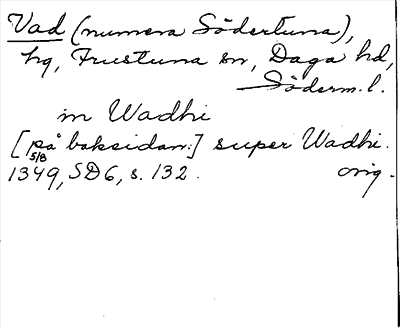 Vad (numera Södertuna),
hg, Frustuna sn, Daga hd,
Söderm.l.
in Wadhi
[på baksidan:] super Wadhi.
5/8
1349, SD6, s. 132. orig.